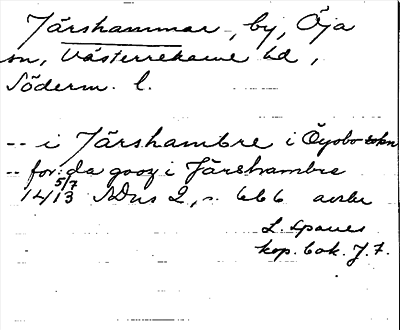 Järshammar, by, Öja
sn, Västerrekarne hd,
Söderm. l.
-- i Järshambre i Öyobo sokn
-- for:da gooz i Järshambre
5/7
1413 SDns 2, s. 666 avskr
L. Spaves
kop. bok. J. 7.